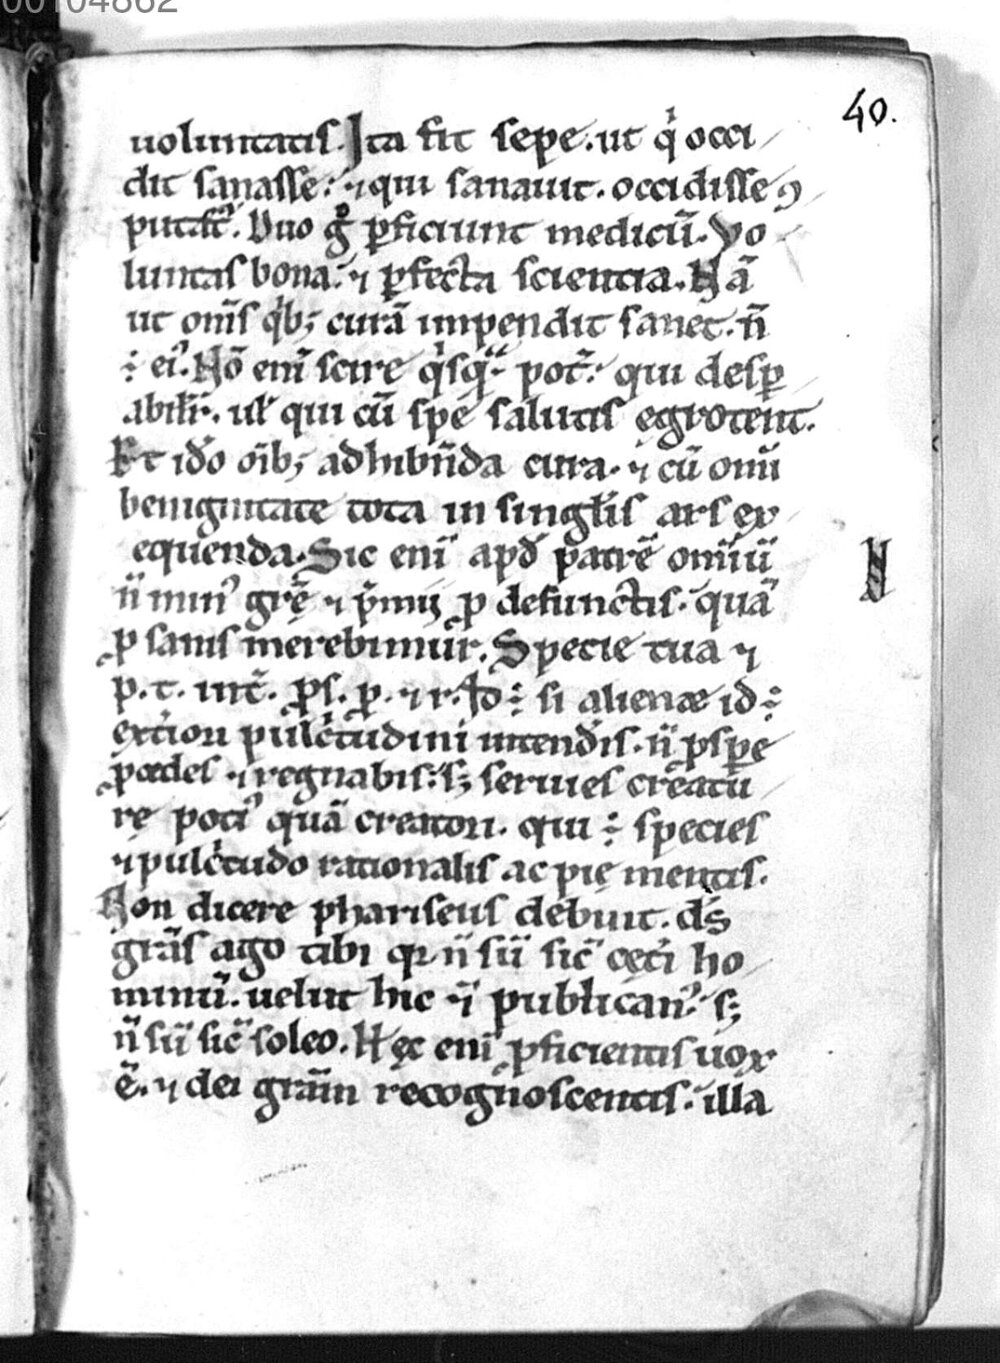 00104862
40.
uoluntatis. Ita fit sepe. ut q̇ occi
dit sanasse: ⁊ qui sanauit. occidisse ꝯ
putet᷑. Duo g̊ ꝑficiunt medicū. Vo
luntas bona. ⁊ ꝑfecta scientia. Nā
ut om̄s qͥb; curā impendit sanet. n̄
÷ ei᷒. Nō eni̅ scire qͥsqͣ pot̄. qui despꝑ
abilit̃. ul̃ qui cū spe salutis ęgrotent.
Et iđo oi̅b; adhibn̄da cura. ⁊ cū omi̅
benignitate tota in singłis ars ex
equenda. Sic eni̅ apđ patrē omiū
n̄ min᷒ grę̄ ⁊ p̄mij ꝓ defunctis. quā
ꝓ sanis merebimur. Specie tua ⁊
p. t. int̄. ꝓs. ꝓ. ⁊ r. Id ÷ si alienæ id ÷
ext̓iori pulc̓tudini intend̓is. n̄ ꝓspe
ꝓcedes ⁊ regnabis: sꝫ seruies creatu
rę poti᷒ quā creatori. qui ÷ species
⁊ pulc̓tudo rationalis ac pię mentis.
Non dicere phariseus debuit. ds̄
grās ago tibi qꝛ n̄ sū sic̄ cęt̓i ho
minū. uelut hic ⁊ publican᷒. sꝫ
n̄ sū sic̄ soleo. Hęc eni̅ ꝓficientis uox
ē. ⁊ dei grām recognoscentis. illa